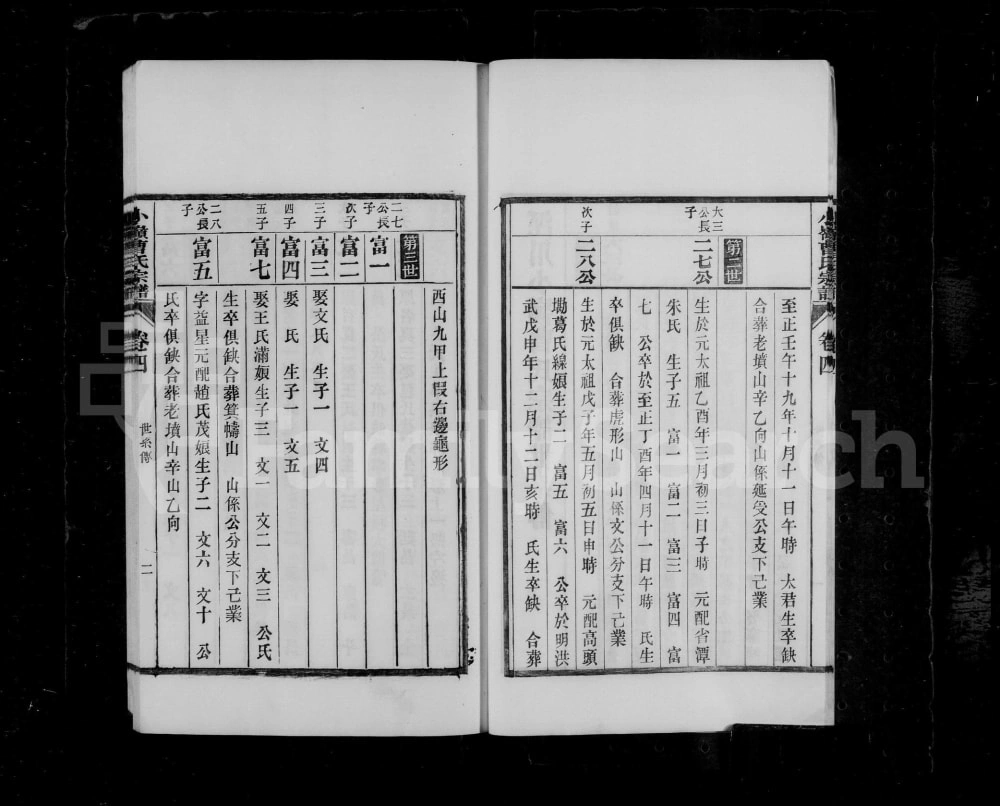 至正壬午十九年十月十一日午時 太君生卒缺
合葬老墳山辛乙向山係延受公支下己業
第二世
大三公長子
二七公
生於元太祖乙酉年三月初三日子時 元配省潭
朱氏 生子五 富一 富二 富三 富四 富
七 公卒於至正丁酉年四月十一日午時 氏生
卒俱缺 合葬虎形山 山係文公分支下己業
次子
二八公
生於元太祖戊子年五月初五日申時 元配高頭
塘葛氏線娘生子二 富五 富六 公卒於明洪
武戊申年十二月十二日亥時 氏生卒缺 合葬
西山九甲上叚右邊龜形
第三世
二七公長子
富一
次子
富二
三子
富三
娶文氏 生子一 文四
四子
富四
娶 氏 生子一 文五
五子
富七
娶王氏滿娘生子三 文一 文二 文三 公氏
生卒俱缺合葬箕幬山 山係公分支下己業
二八公長子
富五
字益星元配趙氏茂娘生子二 文六 文十 公
氏卒俱缺合葬老墳山辛山乙向
小嶺曹氏宗譜
卷四
世系傳
二
FamilySearch